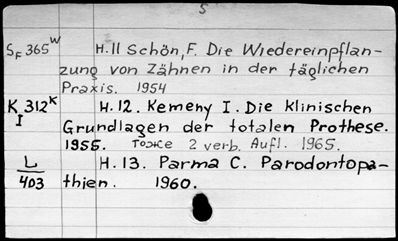 5
S_F 365^W H.11 Schön, F. Die Wiedereinpflan-
zung von Zähnen in der täglichen
Praxis. 1954
K_I 312^K H.12. Kemeny I. Die Klinischen
Grundlagen der totalen Prothese.
1955. Тоже 2 verb. Aufl. 1965.
L/403 H.13. Parma C. Parodontopa-
thien. 1960.